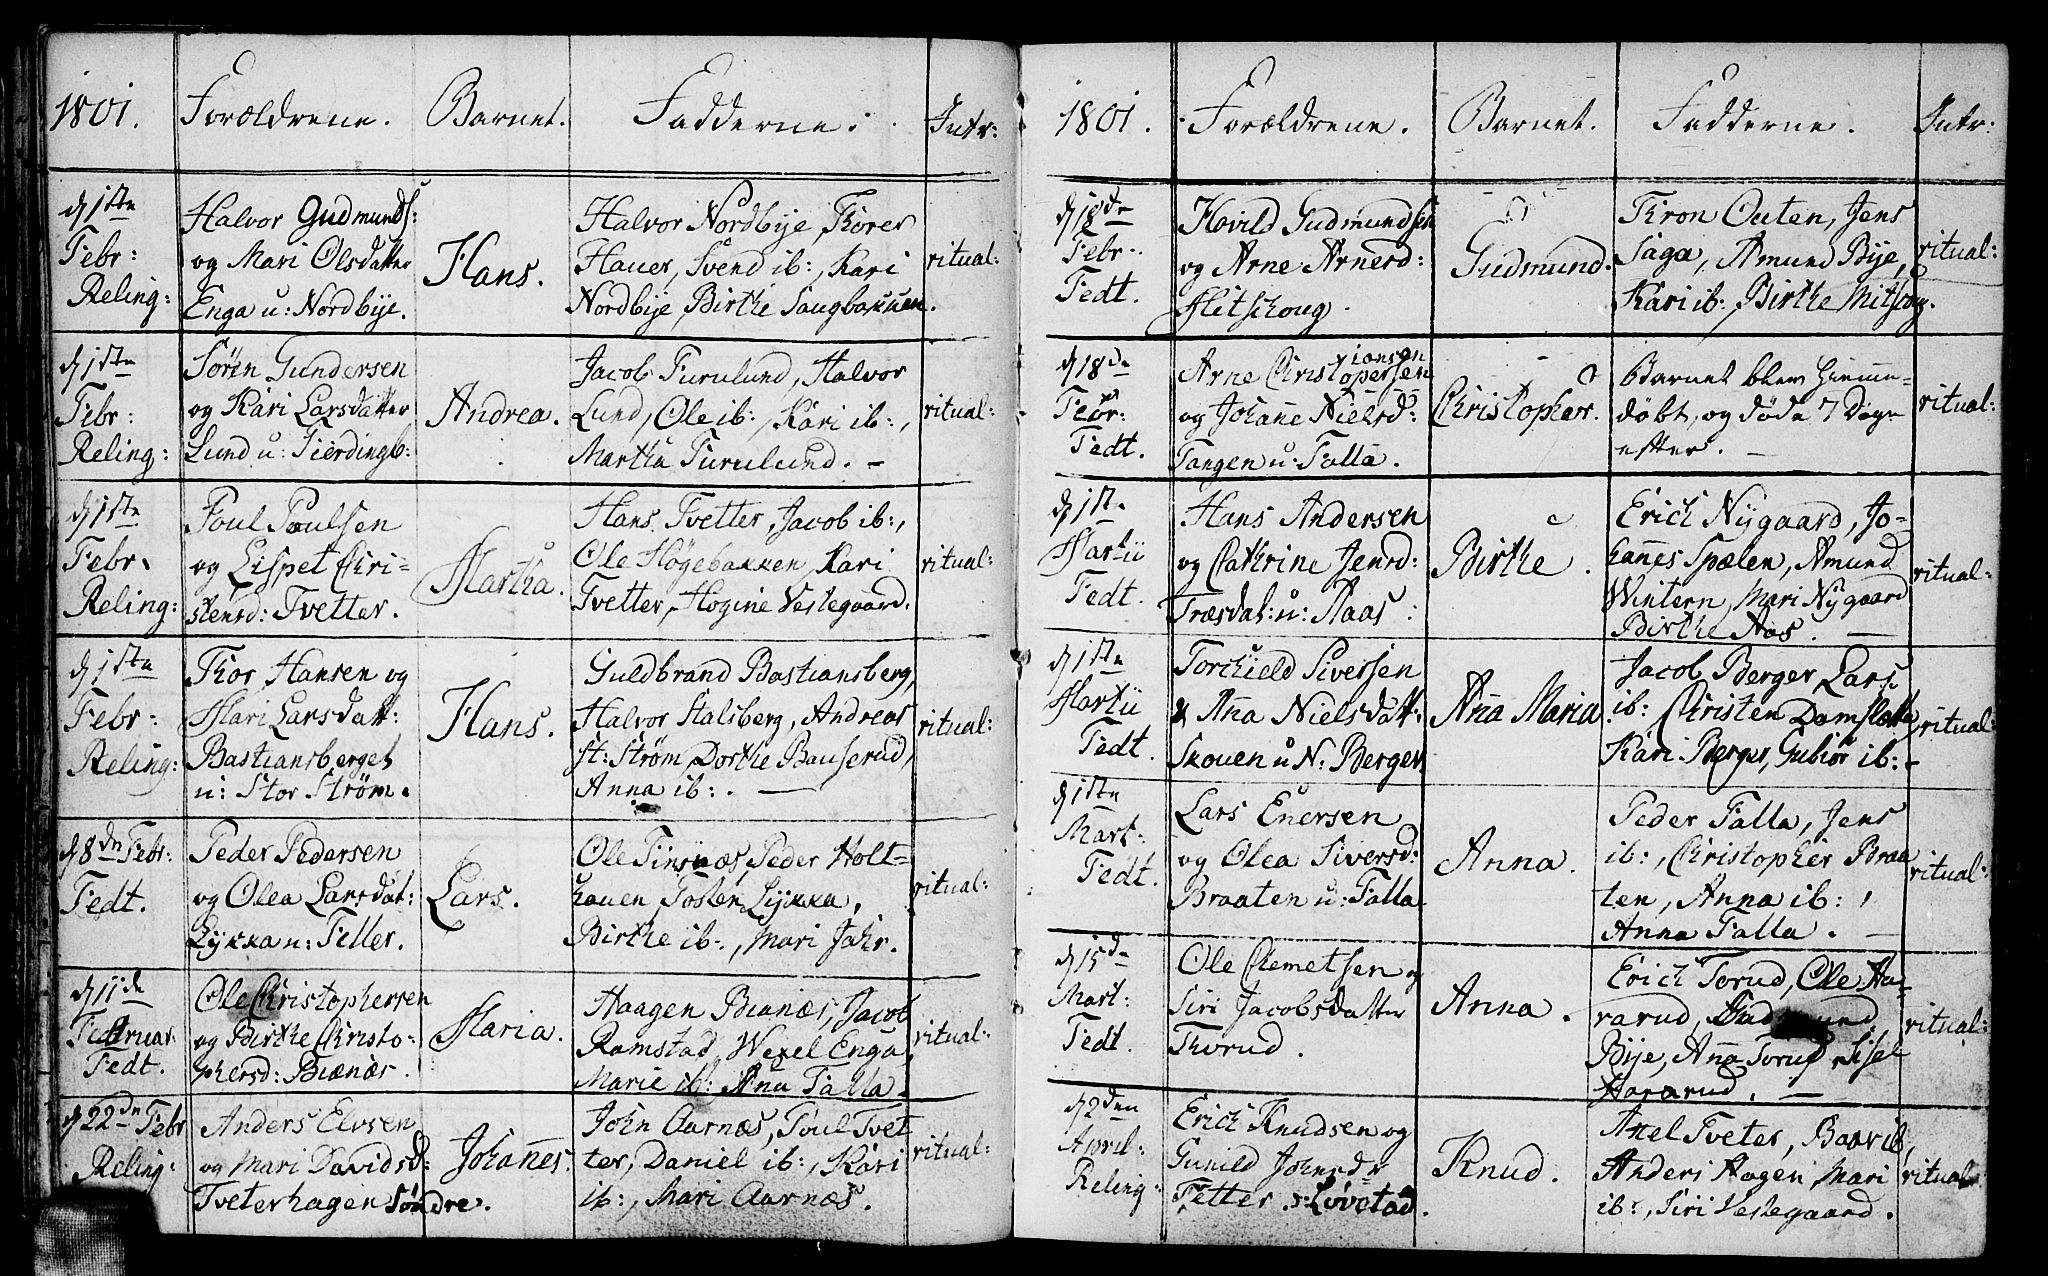 1801. Forældrene. Barnet. Fadderne. Intr:
d 1ste
Febr:
Reling:
Halvor Gudmunds:
og Mari Olsdatter
Enga u: Nordbije.
Hans.
Halvor Nordbije, Thorer
Hauer, Svend ib:, Kari
Nordbije, Birthe Haugbakken.
ritual:
d 1ste
Febr:
Reling:
Sören Gundersen
og Kari Larsdatter
Lund u: Fierdingb:
Andrea.
Jacob Furulund, Halvor
Lund, Ole ib:, Kari ib:,
Martha Furulund. -
ritual:
d 1ste
Febr.
Reling:
Poul Paulsen
og Lispet Chri-
stensd: Tvetter.
Martha.
Hans Tvetter, Jacob ib:,
Ole Högebakken, Kari
Tvetter, Hogine Vestegaard.
ritual:
d 1ste
Febr:
Reling:
Thor Hansen og
Mari Larsdatt:
Bastiansberget
u: Stor Ström.
Hans.
Guldbrand Bastiansberg,
Halvor Stalsberg, Andreas
St: Ström, Dorthe Bauserud,
Anna ib:. —
ritual:
d 8de Febr:
Fedt.
Peder Pedersen
og Olea Larsdat:
Lykka u: Feller.
Lars.
Ole Tinsnæs, Peder Holt-
hauen, Tosten Lykka,
Birthe ib:, Mari Jahr.
ritual:
d 11de
Februar
Fedt.
Ole Christophersen
og Birthe Christo-
phersd: Biænæs.
Maria.
Haagen Biænæs, Jacob
Ramstad, Wexel Enga
Marie ib: Ana Falla.
ritual:
d 22de Febr
Reling:
Anders Elvsen
og Mari Davidsd:
Tveterhagen Söndre.
Johanes.
John Aarnæs, Poul Tvet
ter, Daniel ib:, Kari
ib:, Mari Aarnæs.
ritual:
1801. Forældrene. Barnet. Fadderne. Intr:
d 18de
Febr:
Fedt.
Hovild Gudmundsen
og Arne Arnesd:
Mitschoug.
Gudmund.
Thron Outen, Jens
Saga, Amund Bije,
Kari ib:, Birthe Mitscog.
ritual:
d 18de
Febr:
Fedt.
iansen
Arne Christopersen
og Johane Nielsd:
Tangen u: Falla.
Christopher.
Barnet blev hieme-
döbt, og döde 7 Dage
efter. —
ritual:
d 1ste
Martii
Fedt.
Hans Andersen
og Cathrine Jensd:
Træsdal: u: Aaas:
Birthe.
Erich Nygaard, Jo-
hannes Spælen, Amund
Wintern, Mari Nygaard
Birthe Aas. —
ritual:
d 1ste
Martii
Fedt.
Torchield Siversen
& Ana Nielsdatt:
Skouen u N: Berger.
Ana Maria
Jacob Berger, Lars
ib: Christen Damslætte,
Kari Berger, Gubiör ib: -
ritual:
d 1ste
Mart:
Fedt.
Lars Enersen
og Olea Siversd:
Braaten u: Falla
Anna.
Peder Falla, Jens
ib:, Christopher Braa
ten, Anna ib:,
Anna Falla. —
ritual:
d 15de
Mart:
Fedt.
Ole Clemetsen og
Siri Jacobsdatter
Thorud.
Anna.
Erich Torud, Ole Ha-
rarud,
Bije, Ana Torud, Sisel
Hararud. —
ritual:
d 2den
April:
Reling:
Erich Knudsen og
Gunild Johnsdr
Fetter u: Lövstad.
Knud.
Axel Tveter, Baar ib,
Anders Hagen, Mari
ib:, Siri Vestegaard.
ritual